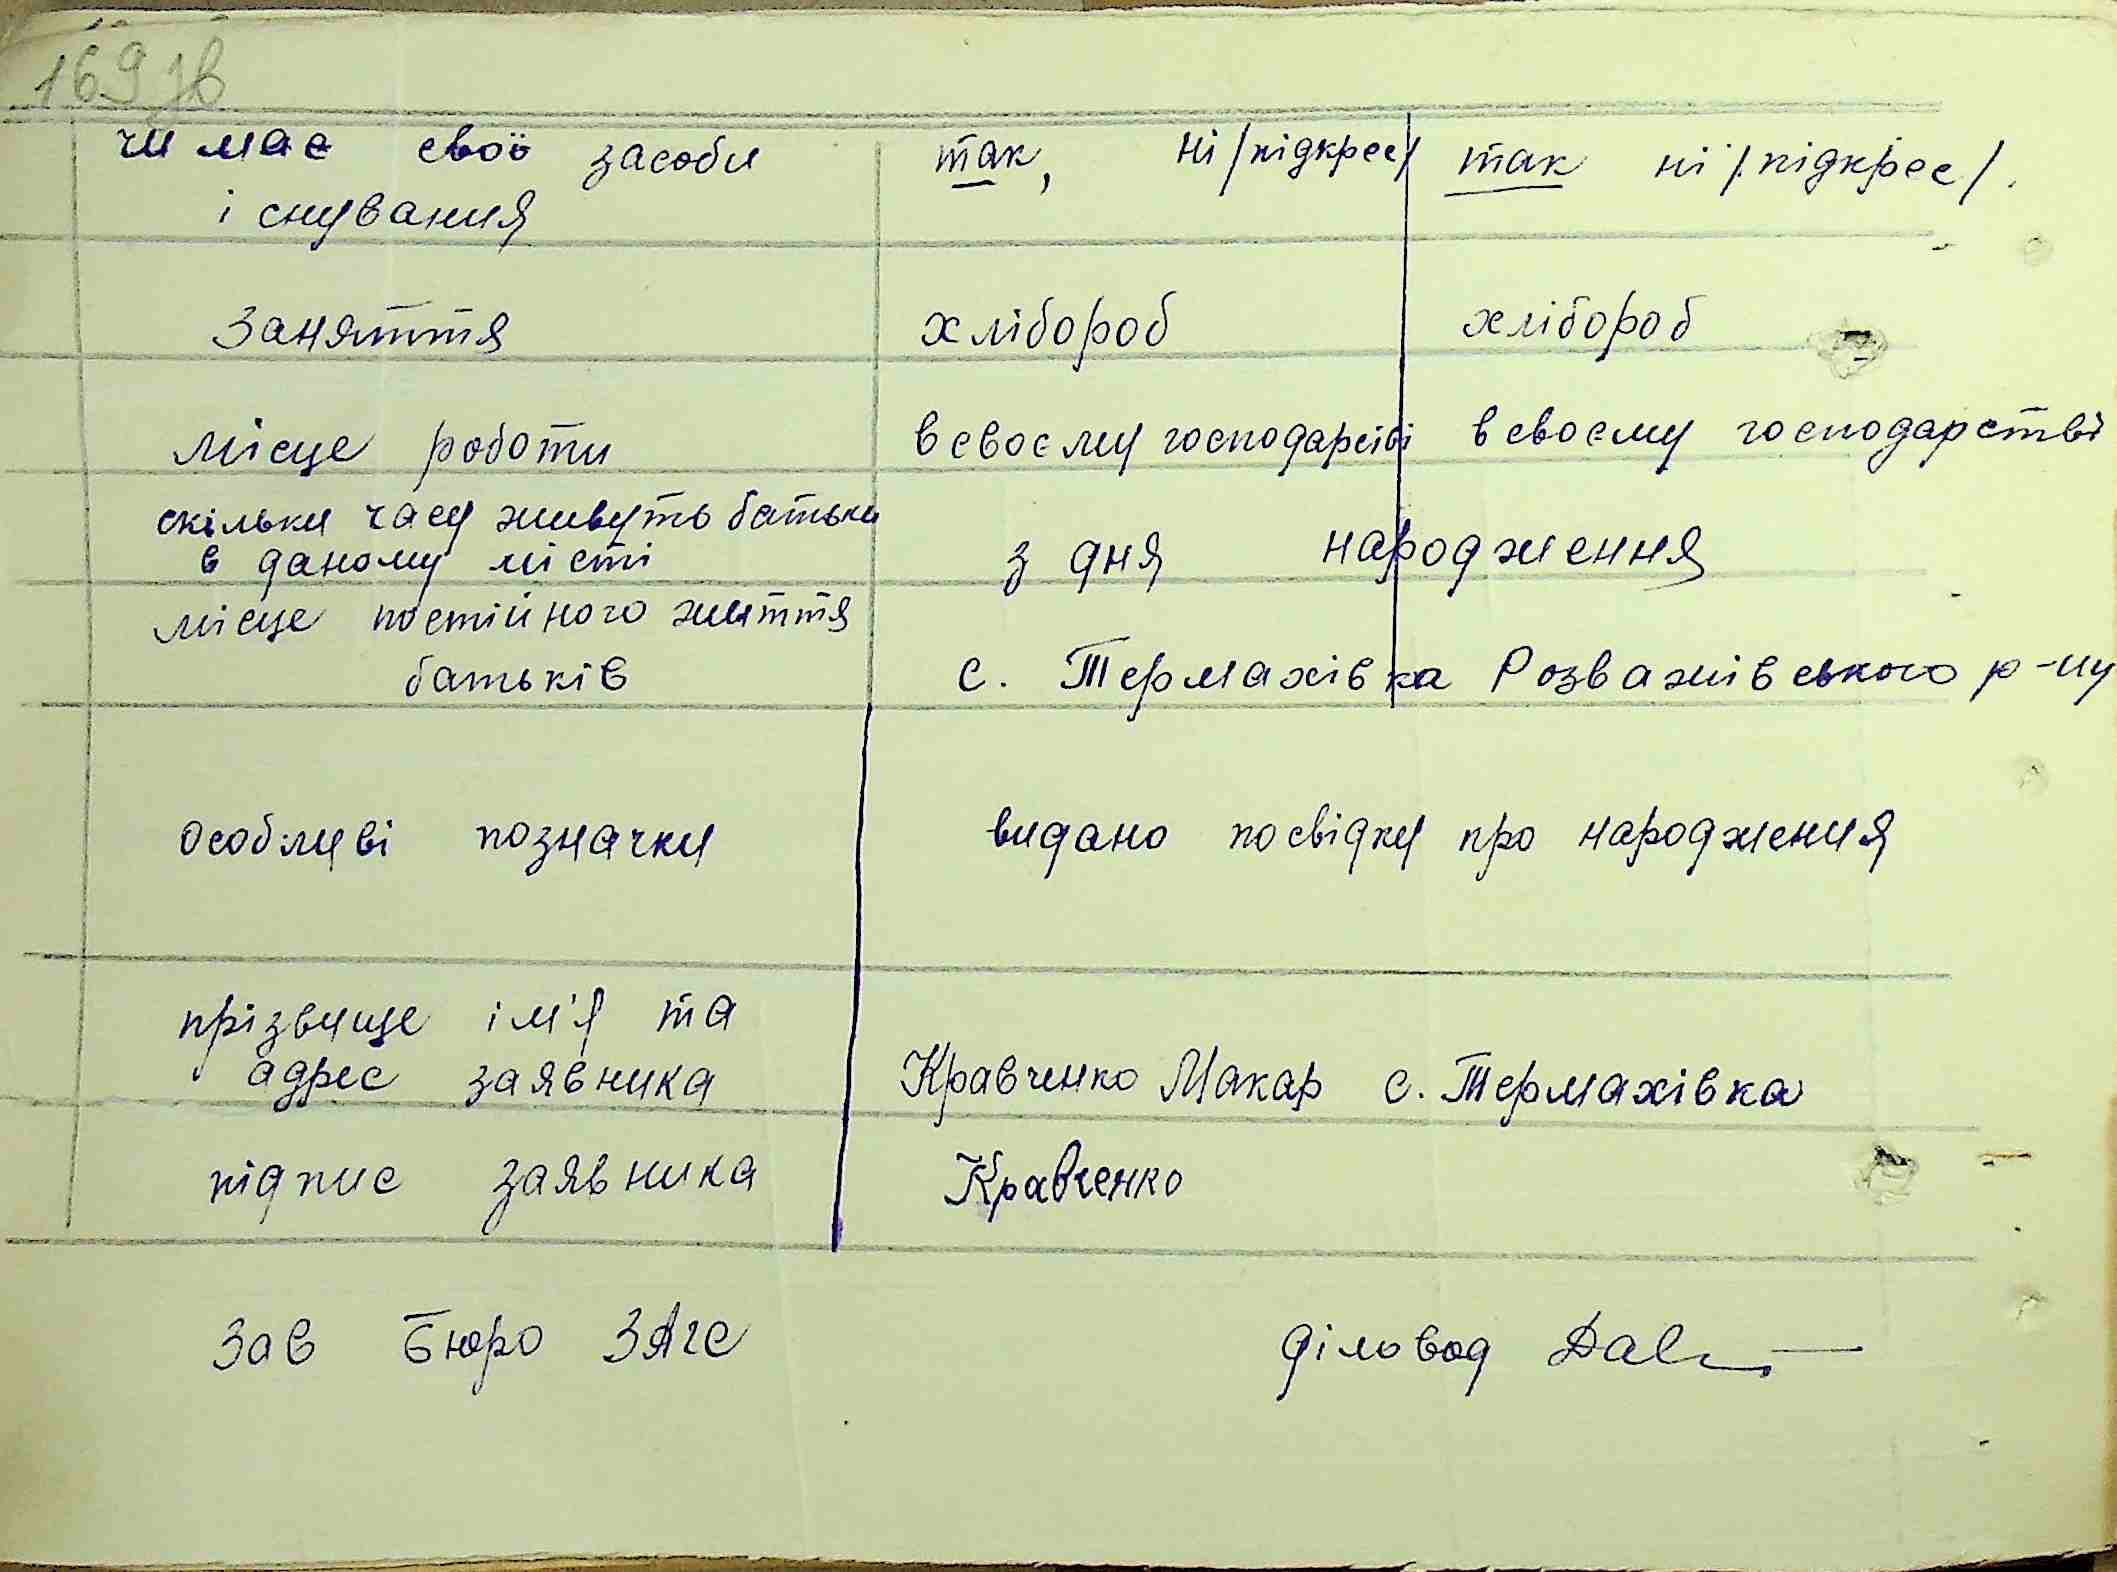 169 зв
чи має свої засоби так, ні /підкрес/ так ні /підкрес/.
існування
Заняття хлібороб хлібороб
місце роботи в своєму господарсіві в своєму господарстві
скільки часу живуть батьки
в даному місті з дня народження
місце постійного життя
батьків с. Термахівка Розважівського р-ну
особливі позначки видано посвідку про народження
прізвище ім'я та
адрес заявника Кравченко Макар с. Термахівка
підпис заявника Кравченко
Зав Бюро ЗАГС діловод